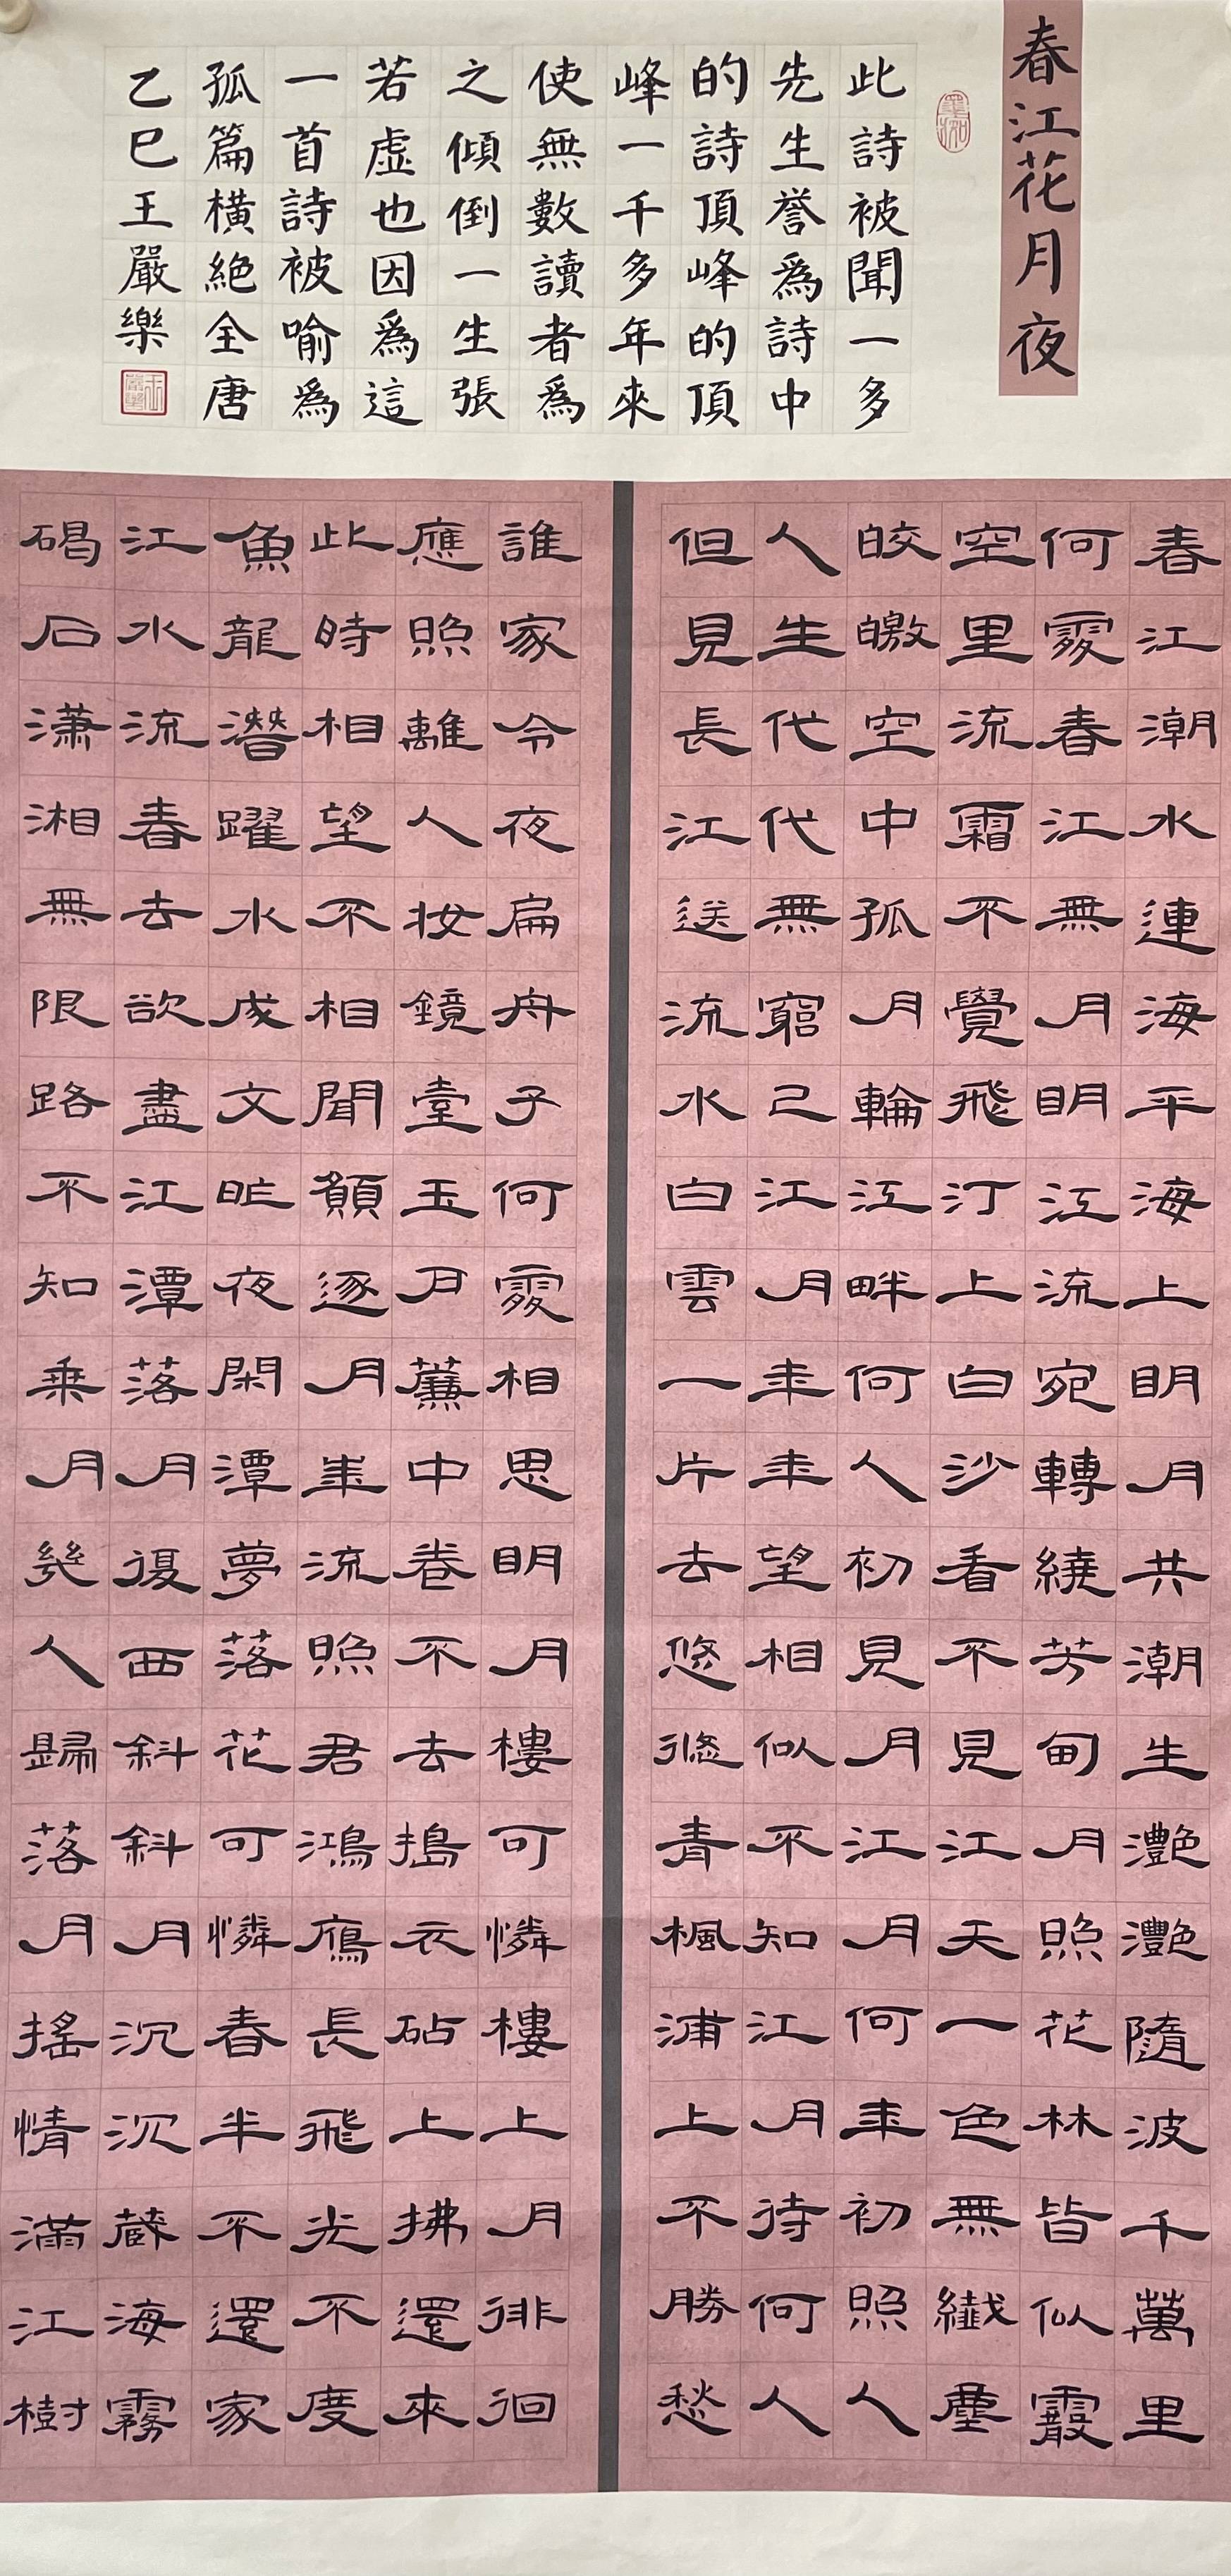 春江花月夜
此詩被聞一多
先生誉爲詩中
的詩頂峰的頂
峰一千多年來
使無數讀者爲
之傾倒一生張
若虛也因爲這
一首詩被喻爲
孤篇橫絕全唐
乙巳王嚴樂
春江潮水連海平海上明月共潮生灩灩隨波千萬里
何處春江無月明江流宛轉繞芳甸月照花林皆似霰
空里流霜不覺飛汀上白沙看不見江天一色無纖塵
皎皦空中孤月輪江畔何人初見月江月何年初照人
人生代代無窮已江月年年望相似不知江月待何人
但見長江送流水白雲一片去悠悠青楓浦上不勝愁
誰家令夜扁舟子何處相思明月樓可憐樓上月徘徊
應照離人妝鏡臺玉戶簾中卷不去搗衣砧上拂還來
此時相望不相聞願逐月華流照君鴻鴈長飛光不度
魚龍潛躍水成文昨夜閑潭夢落花可憐春半不還家
江水流春去欲盡江潭落月復西斜斜月沉沉藏海霧
碣石瀟湘無限路不知乘月幾人歸落月搖情滿江樹